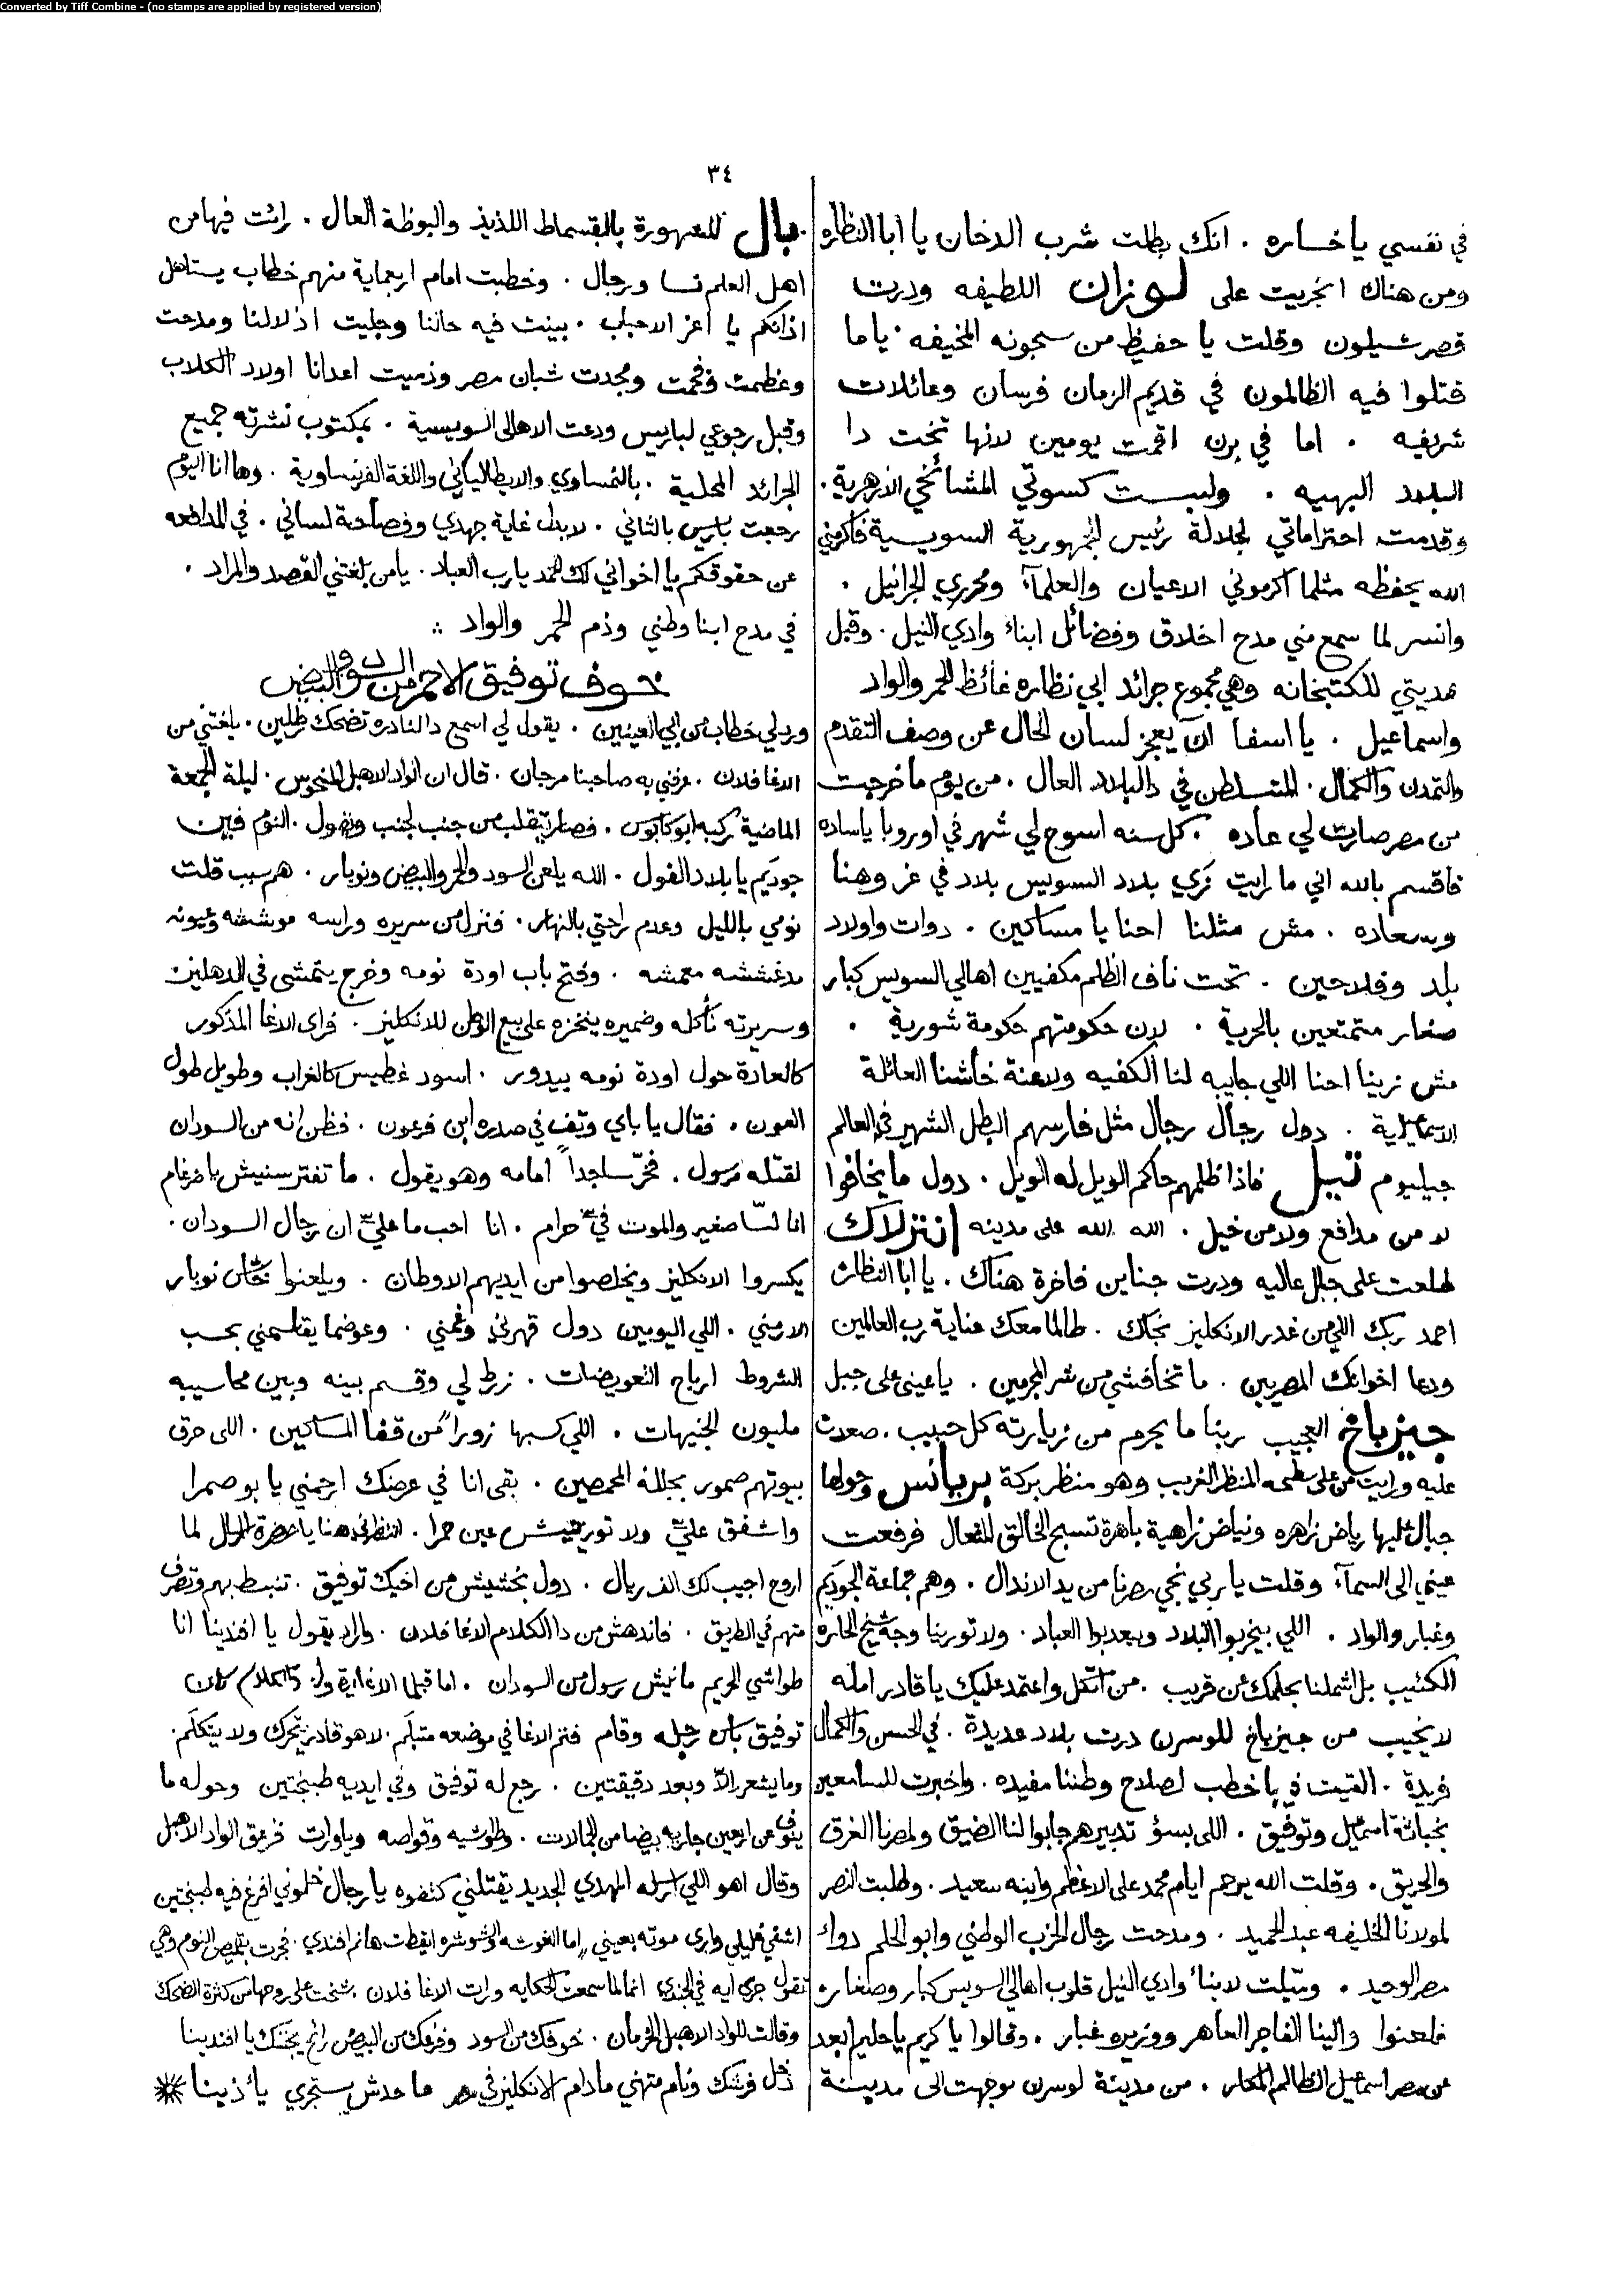 Converted by Tiff Combine - (no stamps are applied by registered version)
٣٤
في نفسي يا خساره . انك بطلت شرب الدخان يا ابا النظاره
ومن هناك انجريت على لوزان اللطيفه ودرت
قصر شيلون وقلت يا حفيظ من سجونه المخيفه . ياما
قتلوا فيه الظالمون في قديم الزمان فرسان وعائلات
شريفيه . اما في برن اقمت يومين لانها تخت دا
البلاد البهيه . ولبست كسوتي المشائخي الازهرية .
وقدمت احتراماتي لجلالة رئيس الجمهورية السويسية فاكرمني
الله يحفظه مثلما اكرموني الاعيان والعلمآء ومحرري الجرانيل .
وانسر لما سمع مني مدح اخلاق وفضائل ابناء وادي النيل . وقبل
هديتي للكتبخانه وهي مجموع جرائد ابي نظاره غائظ الحمر والواد
واسماعيل . يا اسفا ان يعجز لسان الحال عن وصف التقدم
والتمدن والكمال . المتسلطن في دالبلاد العال . من يوم ما خرجت
من مصر صارت لي عاده . كل سنه اسوح لي شهر في اوروبا ياساده
فاقسم بالله اني ما رايت زي بلاد السويس بلاد في عز وهنا
وسعاده . مش مثلنا احنا يا مساكين . دوات واولاد
بلد وفلاحين . تحت ناف الظلم مكفيين اهالي السويس كبار
صغار متمتعين بالحرية . لان حكومتهم حكومة شورية .
مش زينا احنا اللي جايبه لنا الكفيه ولاعنة خاشنا العائلة
الاسماعيلية . دول رجال رجال مثل فارسهم البطل الشهير في العالم
جيليوم تيل فاذا ظلمهم حاكم الويل له الويل . دول ما يخافوا
لا من مدافع ولا من خيل . الله الله على مدينه انترلاك
طلعت على جبل عاليه ودرت جناين فاخرة هناك . يا ابا النظاره
احمد ربك اللي من غدر الانكليز نجاك . طالما معك عناية رب العالمين
ودعا اخوانك المصريين . ما تخافشي من شر المجرمين . يا عيني على جبل
جيزباخ العجيب ربنا ما يحرم من زيارته كل حبيب . صعدت
عليه ورايت من على سطحه المنظر الغريب وهو منظر بركة بريانس وحولها
جبال عليها رياض زاهره وغياض زاهية باهرة تسبح الخالق الفعال فرفعت
عيني الى السمآء وقلت يا ربي نجي مصرنا من يد الاندال . وهم جماعة الجوديم
وغبار والواد . اللي بيخربوا البلاد ويعدبوا العباد . ولا تورينا وجه شيخ الحاره
الكئيب بل اشملنا بحلمك عن قريب . من اتكل واعتمد عليك يا قادر امله
لا يخيب من جيزباخ للوسرن درت بلاد عديدة . في الحسن والكمال
فريدة . القيت في خطب لصلاح وطننا مفيده . واخبرت للسامعين
بخباثة اسماعيل وتوفيق . اللي بسؤ تدبيرهم جابوا لنا الضيق ولمصرنا الغرق
والحريق . وقلت الله يرحم ايام محمد على الاعظم وابنه سعيد . وطلبت النصر
لمولانا الخليفه عبد الحميد . ومدحت رجال الحزب الوطني وابو الحلم دواء
مصر الوحيد . وميّلت لابناء وادي النيل قلوب اهالي السويس كبار وصغار .
فلعنوا والينا الفاجر العاهر ووزيره غبار . وقالوا يا كريم يا حليم ابعد
عن مصر اسماعيل الظالم المكار . من مدينة لوسرن توجهت الى مدينة
بال المشهورة بالبقسماط اللذيذ والبوظة العال . رائت فيها من
اهل العلم نسا ورجال . وخطبت امام اربعماية منهم خطاب يستاهل
اذانكم يا اعز الاحباب . بينت فيه حالنا وجليت اذلالنا ومدحت
وعظمت وفخمت ومجدت شبان مصر وذميت اعدانا اولاد الكلاب
وقبل رجوعي لباريس ودعت الاهالى السويسية . بمكتوب نشرته جميع
الجرائد المحلية . بالنمساوي والايطالياني واللغة الفرنساوية . وها انا اليوم
رجعت باريس بالثاني . لابدل غاية جهدي وفصاحة لساني . في المدافعه
عن حقوقكم يا اخواني لك الحمد يا رب العباد . يا من بلغتني القصد والمراد .
في مدح ابنا وطني وذم الحمر والواد
خوف توفيق الاحمر من السود والبيض
ورد لي خطاب من ابي العينين . يقول لي اسمع دالنادره تضحك طلين . بلغتني من
الاغا فلان . عرفني به صاحبنا مرجان . قال ان الواد الاهبل المنحوس . ليلة الجمعة
الماضية ركبه ابو كابوس . فصار يتقلب من جنب لجنب ويقول . النوم فين
جوديم يا بلاد الفول . الله يلعن السود والحمر والبيض ونوبار . هم سبب قلت
نومي بالليل وعدم راحتي بالنهار . فنزل من سريره وراسه موشفه وعيونه
مدغششه معمشه . وفتح باب اودة نومه وخرج يتمشى في الدهليز
وسريرته تأكله وضميره ينخزه على بيع الوطن للانكليز . فراى الاغا المذكور
كالعادة حول اودة نومه بيدور . اسود غطيس كالغراب وطويل طول
العون . فقال يا باي وتف في صدره ابن فرعون . فظن انه من السودان
لقتله مرسول . فخرّ ساجداً امامه وهو يقول . ما تفترسنيش يا ضرغام
انا لسّا صغير والموت فيّ حرام . انا احب ما عليّ ان رجال السودان .
يكسروا الانكليز ويخلصوا من ايديهم الاوطان . ويلعنوا خاش نوبار
الارمني . اللي اليومين دول قهرني وغمني . وعوضما يقاسمني بحسب
الشروط ارباح التعويضات . زرط لي وقسم بينه وبين محاسيبه
مليون الجنيهات . اللي كسبها زوراً من قفا المساكين . اللى حرق
بيوتهم صمور بجلله المحمصين . بقى انا في عرضك ارحمني يا بو صمرا
واشفق عليّ ولا تورينيش عين حمرا . انتظرني هنا يا حضرة المرسال لما
اروح اجيب لك الف ريال . دول بخشيش من اخيك توفيق . تنبسط بهم وتصرف
منهم في الطريق . فاندهش من دا الكلام الاغا فلان . واراد يقول يا افندينا انا
طواشي الحريم مانيش رسول من السودان . اما قبلما الاغا
توفيق باس رجله وقام فتم الاغا في موضعه متبلّم . لا هو قادر يتحرك ولا يتكلّم .
وما يشعر الاّ وبعد دقيقتين . رجع له توفيق وفي ايديه طبنجتين وحوله ما
ينوف عن اربعين جاريه بيضا من الجمالات . وطواشيه وقواصه وياورات فزعق الواد الاهبل
وقال اهو اللي ارسله المهدي الجديد يقتلني كتفوه يا رجال خلوني افرغ فيه طبنجتين
اشفي غليلي وارى موته بعيني اما الغوشه والشوشره ايقظت هانم افندي . فجرت بقميص النوم وهي
تقول جرى ايه في الجندي انما لما سمعت الحكايه ورات الاغا فلان . شخت على روحها من كثرة الضحك
وقالت للواد الاهبل الخرمان . خوفك من السود وفزعك من البيض رائح يجننك يا افندينا
ادخل فرشتك ونام متهني مادام الانكليز في مصر ما حدش يستجري يأذينا